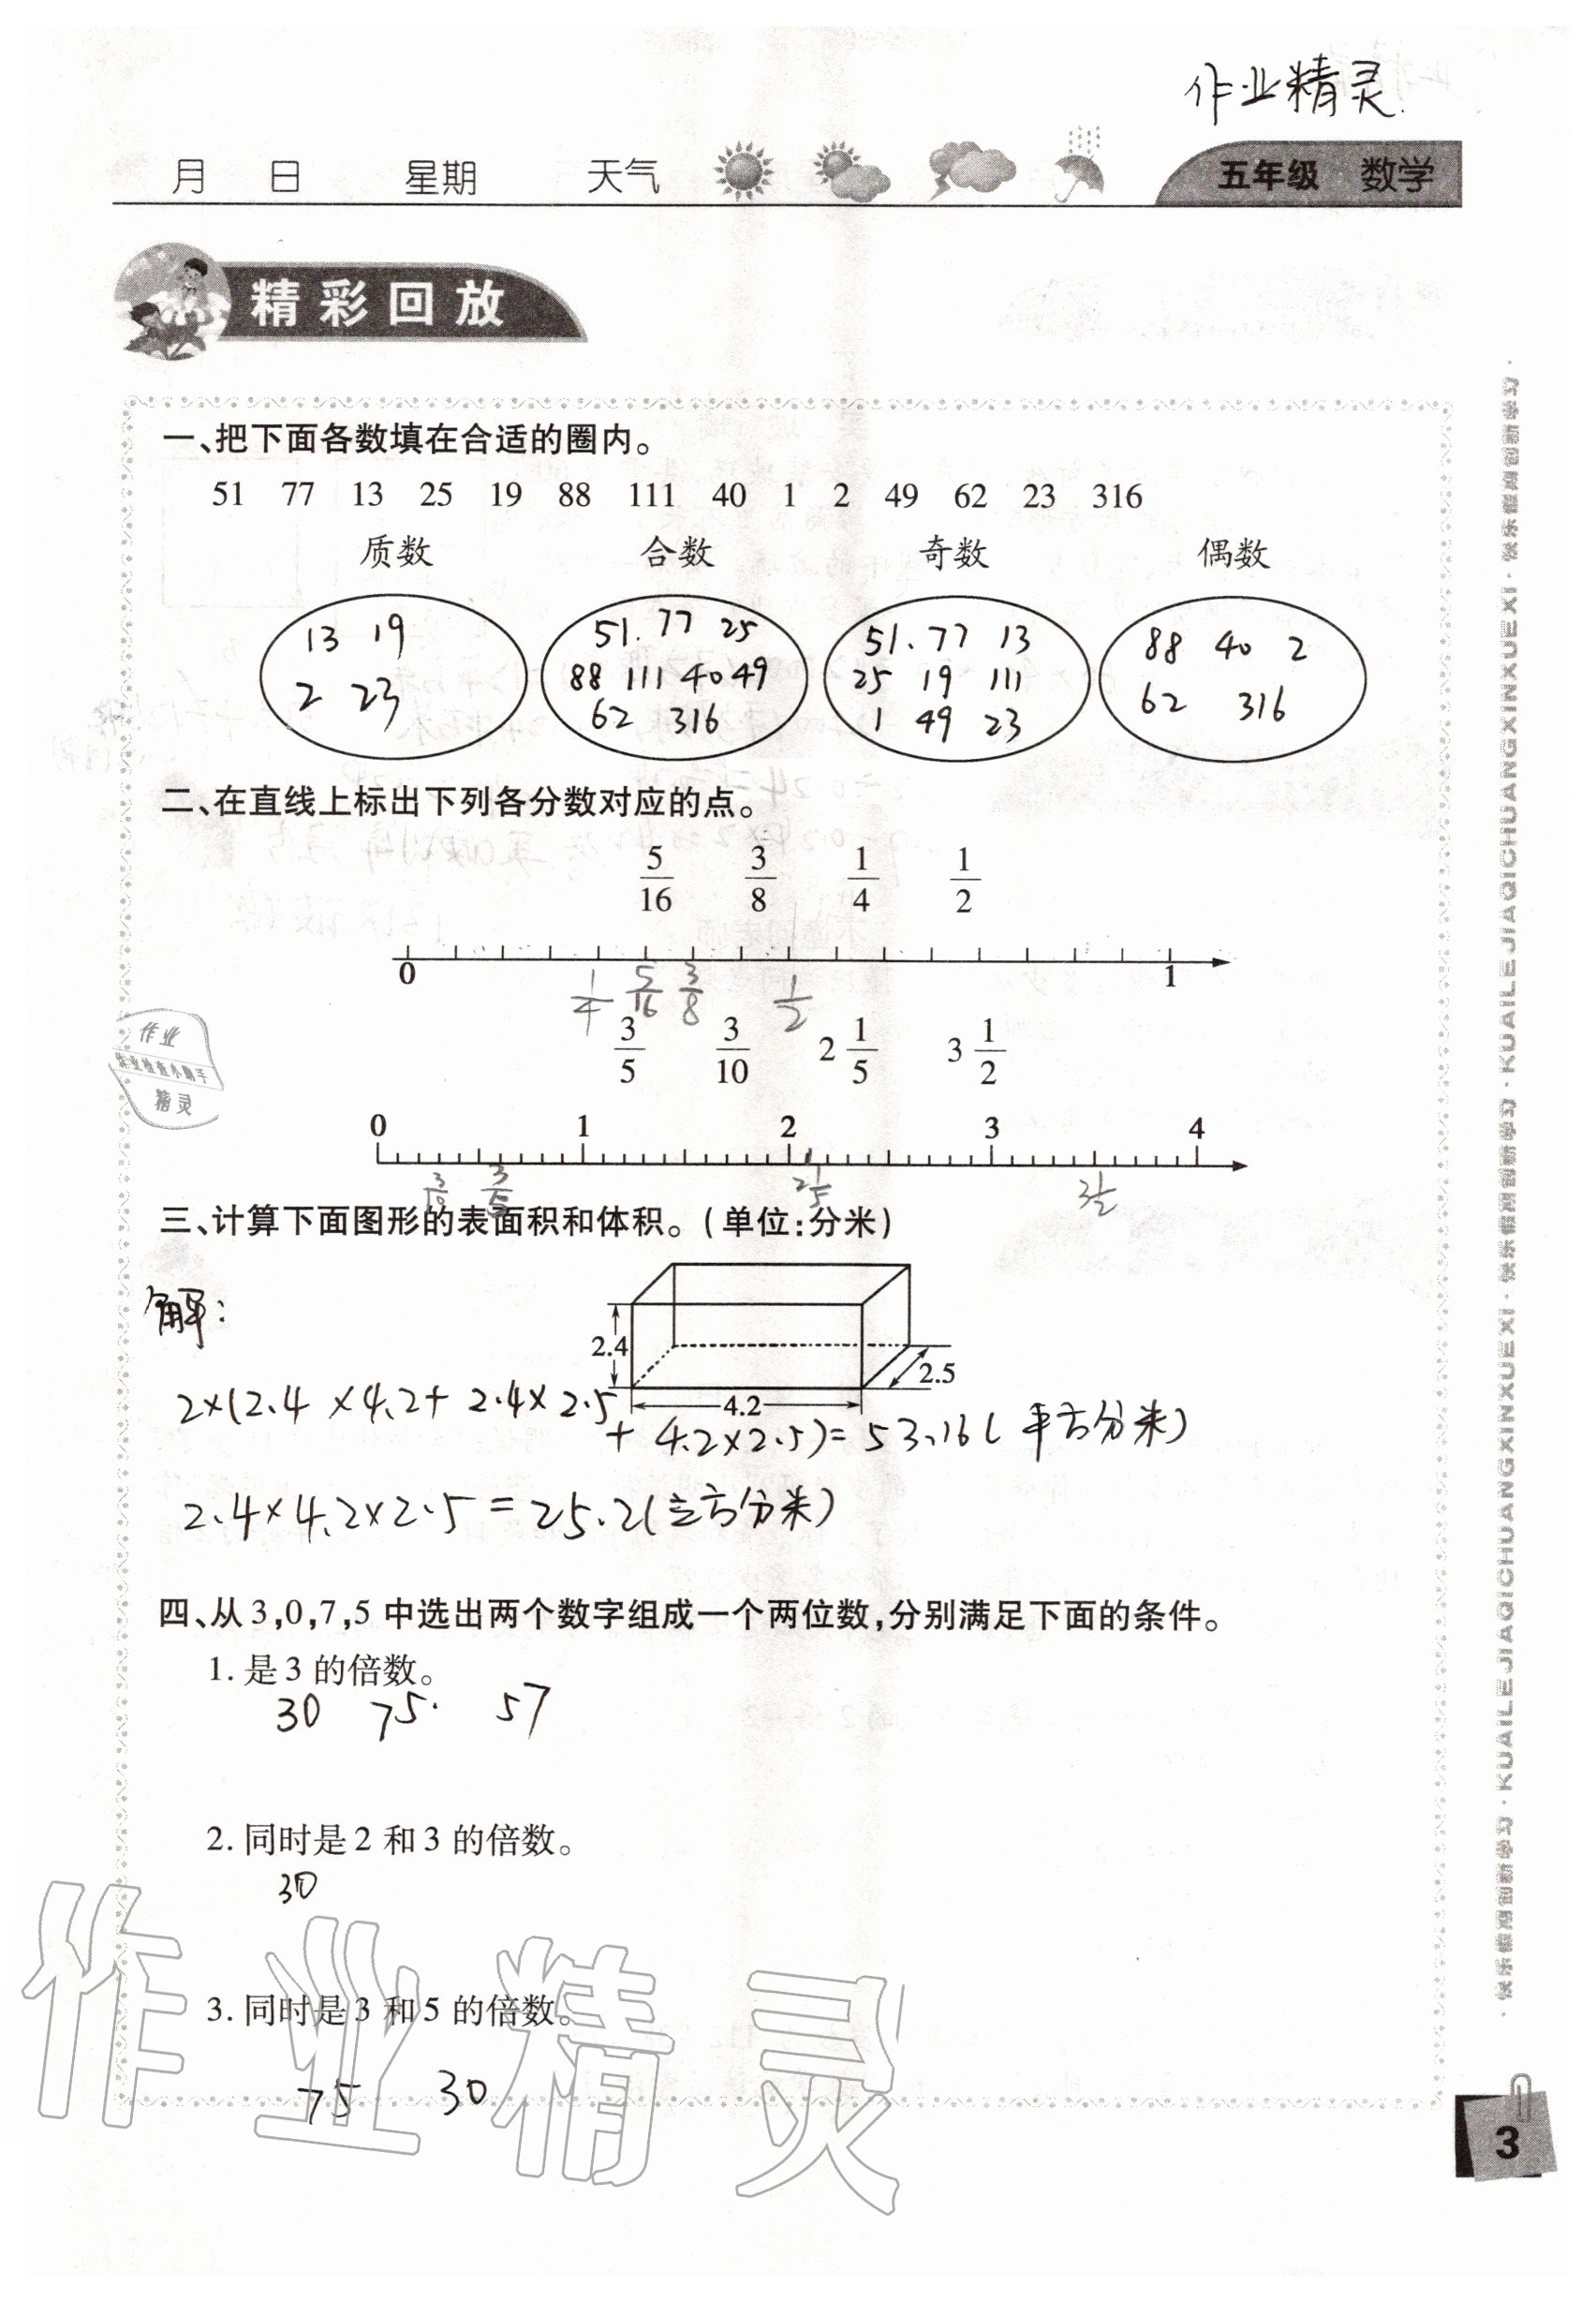 作业精灵
月 日 星期 天气 五年级 数学
精彩回放
一、把下面各数填在合适的圈内。
51 77 13 25 19 88 111 40 1 2 49 62 23 316
质数 合数 奇数 偶数
13 19 51. 77 25 51、77 13 88 40 2
2 23 88 111 40 49 25 19 111 62 316
62 316 1 49 23
二、在直线上标出下列各分数对应的点。
5/16 3/8 1/4 1/2
0 1
1/4 5/16 3/8 1/2
3/5 3/10 2 1/5 3 1/2
0 1 2 3 4
3/10 3/5 2 1/5 3 1/2
三、计算下面图形的表面积和体积。(单位:分米)
解:
2.4
2.5
4.2
2×(2.4×4.2+2.4×2.5
+4.2×2.5)=53.16(平方分米)
2.4×4.2×2.5=25.2(立方分米)
四、从3,0,7,5中选出两个数字组成一个两位数,分别满足下面的条件。
1. 是3的倍数。
30 75. 57
2. 同时是2和3的倍数。
30
3. 同时是3和5的倍数。
75 30
3
作业
作业检查小助手
精灵
作业精灵
·快乐假期创新学习·KUAILEJIAQICHUANGXINXUEXI·快乐假期创新学习·KUAILEJIAQICHUANGXINXUEXI·快乐假期创新学习·